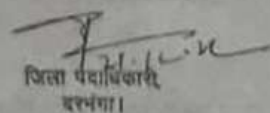 जिला पदाधिकारी,
दरभंगा।